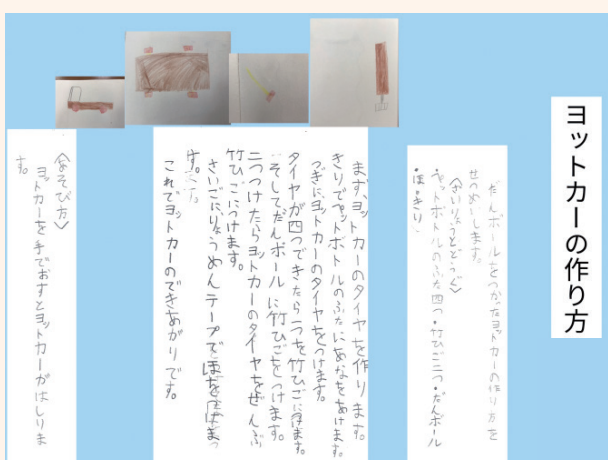 ヨットカーの作り方
だんボールをつかったヨットカーの作り方を
せつめいします。
〈ざいりょうとどうぐ〉
ペットボトルのふた四つ・竹ひご二つ・だんボール
・ほ・きり
まず、ヨットカーのタイヤを作ります。
きりでペットボトルのふたにあなをあけます。
つぎに、ヨットカーのタイヤをつけます。
タイヤが四つできたら二つを竹ひごに
そしてだんボールに竹ひごをつけます。
二つつけたらヨットカーのタイヤをぜんぶ
竹ひごにつけます。
さいごにりょうめんテープでほを
す。
これでヨットカーのできあがりです。
〈あそび方〉
ヨットカーを手でおすとヨットカーがはしりま
す。